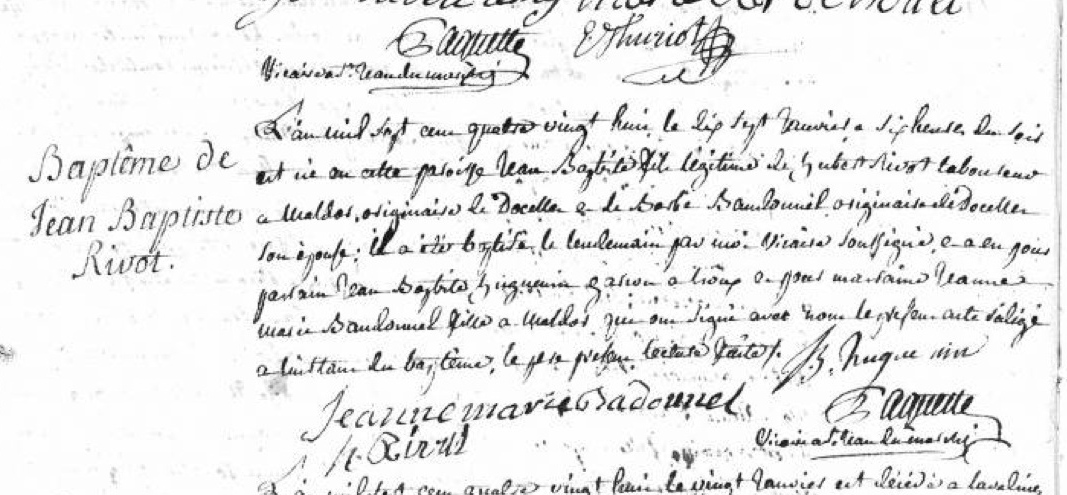 Paquette
Vicaire a St. Jean du marché
Baptême de
Jean Baptiste
Rivot.
L'an mil sept cent quatre vingt huit, le dix sept Janvier a six heures du soir
est né en cette paroisse Jean Baptiste fils légitime de hubert Rivot laboureur
a Maldos, originaire de Docelles et de Barbe Bandonnel originaire de Docelles
son épouse; il a été baptisé le lendemain par moi Vicaire soussigné, et a eu pour
parrain Jean Baptiste huguenin garcon a et pour marraine Jeanne
marie Bandonnel fille a Maldos, qui ont signé avec nous le présent acte rédigé
a l'instant du baptême, le pere présent lecture faite.
J. B. hugue nin
Jeanne marie Badonnel
Paquette
h. Rivot
Vicaire a St. Jean du marché
L'an mil sept cent quatre vingt huit le vingt Janvier est décédé a